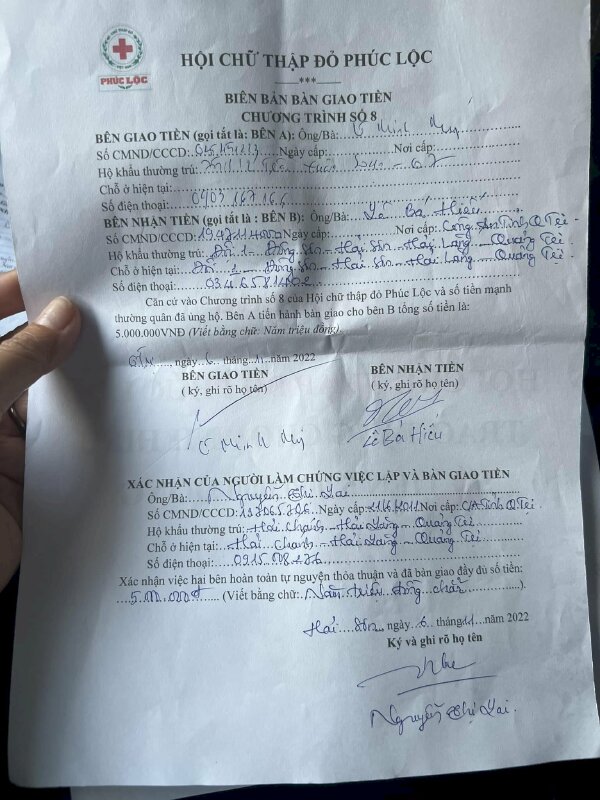 PHÚC LỘC
HỘI CHỮ THẬP ĐỎ PHÚC LỘC
***
BIÊN BẢN BÀN GIAO TIỀN
CHƯƠNG TRÌNH SỐ 8
BÊN GIAO TIỀN (gọi tất là: BÊN A): Ông/Bà: Minh
Số CMND/CCCD: Ngày cấp: Nơi cấp:
Hộ khẩu thường trú:
Chỗ ở hiện tại:
Số điện thoại: 0903 167 166
BÊN NHẬN TIỀN (gọi tất là : BÊN B): Ông/Bà: Lê Bá Hiếu
Số CMND/CCCD: Ngày cấp: Nơi cấp: Công an Tỉnh Q Trị
Hộ khẩu thường trú: Đội 1 - Đông Sơn - Hải Sơn - Hải Lăng - Quảng Trị
Chỗ ở hiện tại: Đội 1 - Đông Sơn - Hải Sơn - Hải Lăng - Quảng Trị
Số điện thoại:
Căn cứ vào Chương trình số 8 của Hội chữ thập đỏ Phúc Lộc và số tiền mạnh
thường quân đã ủng hộ. Bên A tiến hành bàn giao cho bên B tổng số tiền là:
5.000.000VNĐ (Viết bằng chữ: Năm triệu đồng).
ngày 6 tháng 11 năm 2022
BÊN GIAO TIỀN BÊN NHẬN TIỀN
( ký, ghi rõ họ tên) ( ký, ghi rõ họ tên)
Minh Lê Bá Hiếu
XÁC NHẬN CỦA NGƯỜI LÀM CHỨNG VIỆC LẬP VÀ BÀN GIAO TIỀN
Ông/Bà: Nguyễn Thị Lai
Số CMND/CCCD: Ngày cấp: Nơi cấp: CA Tỉnh Q Trị
Hộ khẩu thường trú: Hải Chánh - Hải Lăng - Quảng Trị
Chỗ ở hiện tại: Hải Chánh - Hải Lăng - Quảng Trị
Số điện thoại:
Xác nhận việc hai bên hoàn toàn tự nguyện thỏa thuận và đã bàn giao đầy đủ số tiền:
5.000.000đ (Viết bằng chữ: Năm triệu đồng chẵn).
Hải Sơn, ngày 6 tháng 11 năm 2022
Ký và ghi rõ họ tên
Nguyễn Thị Lai